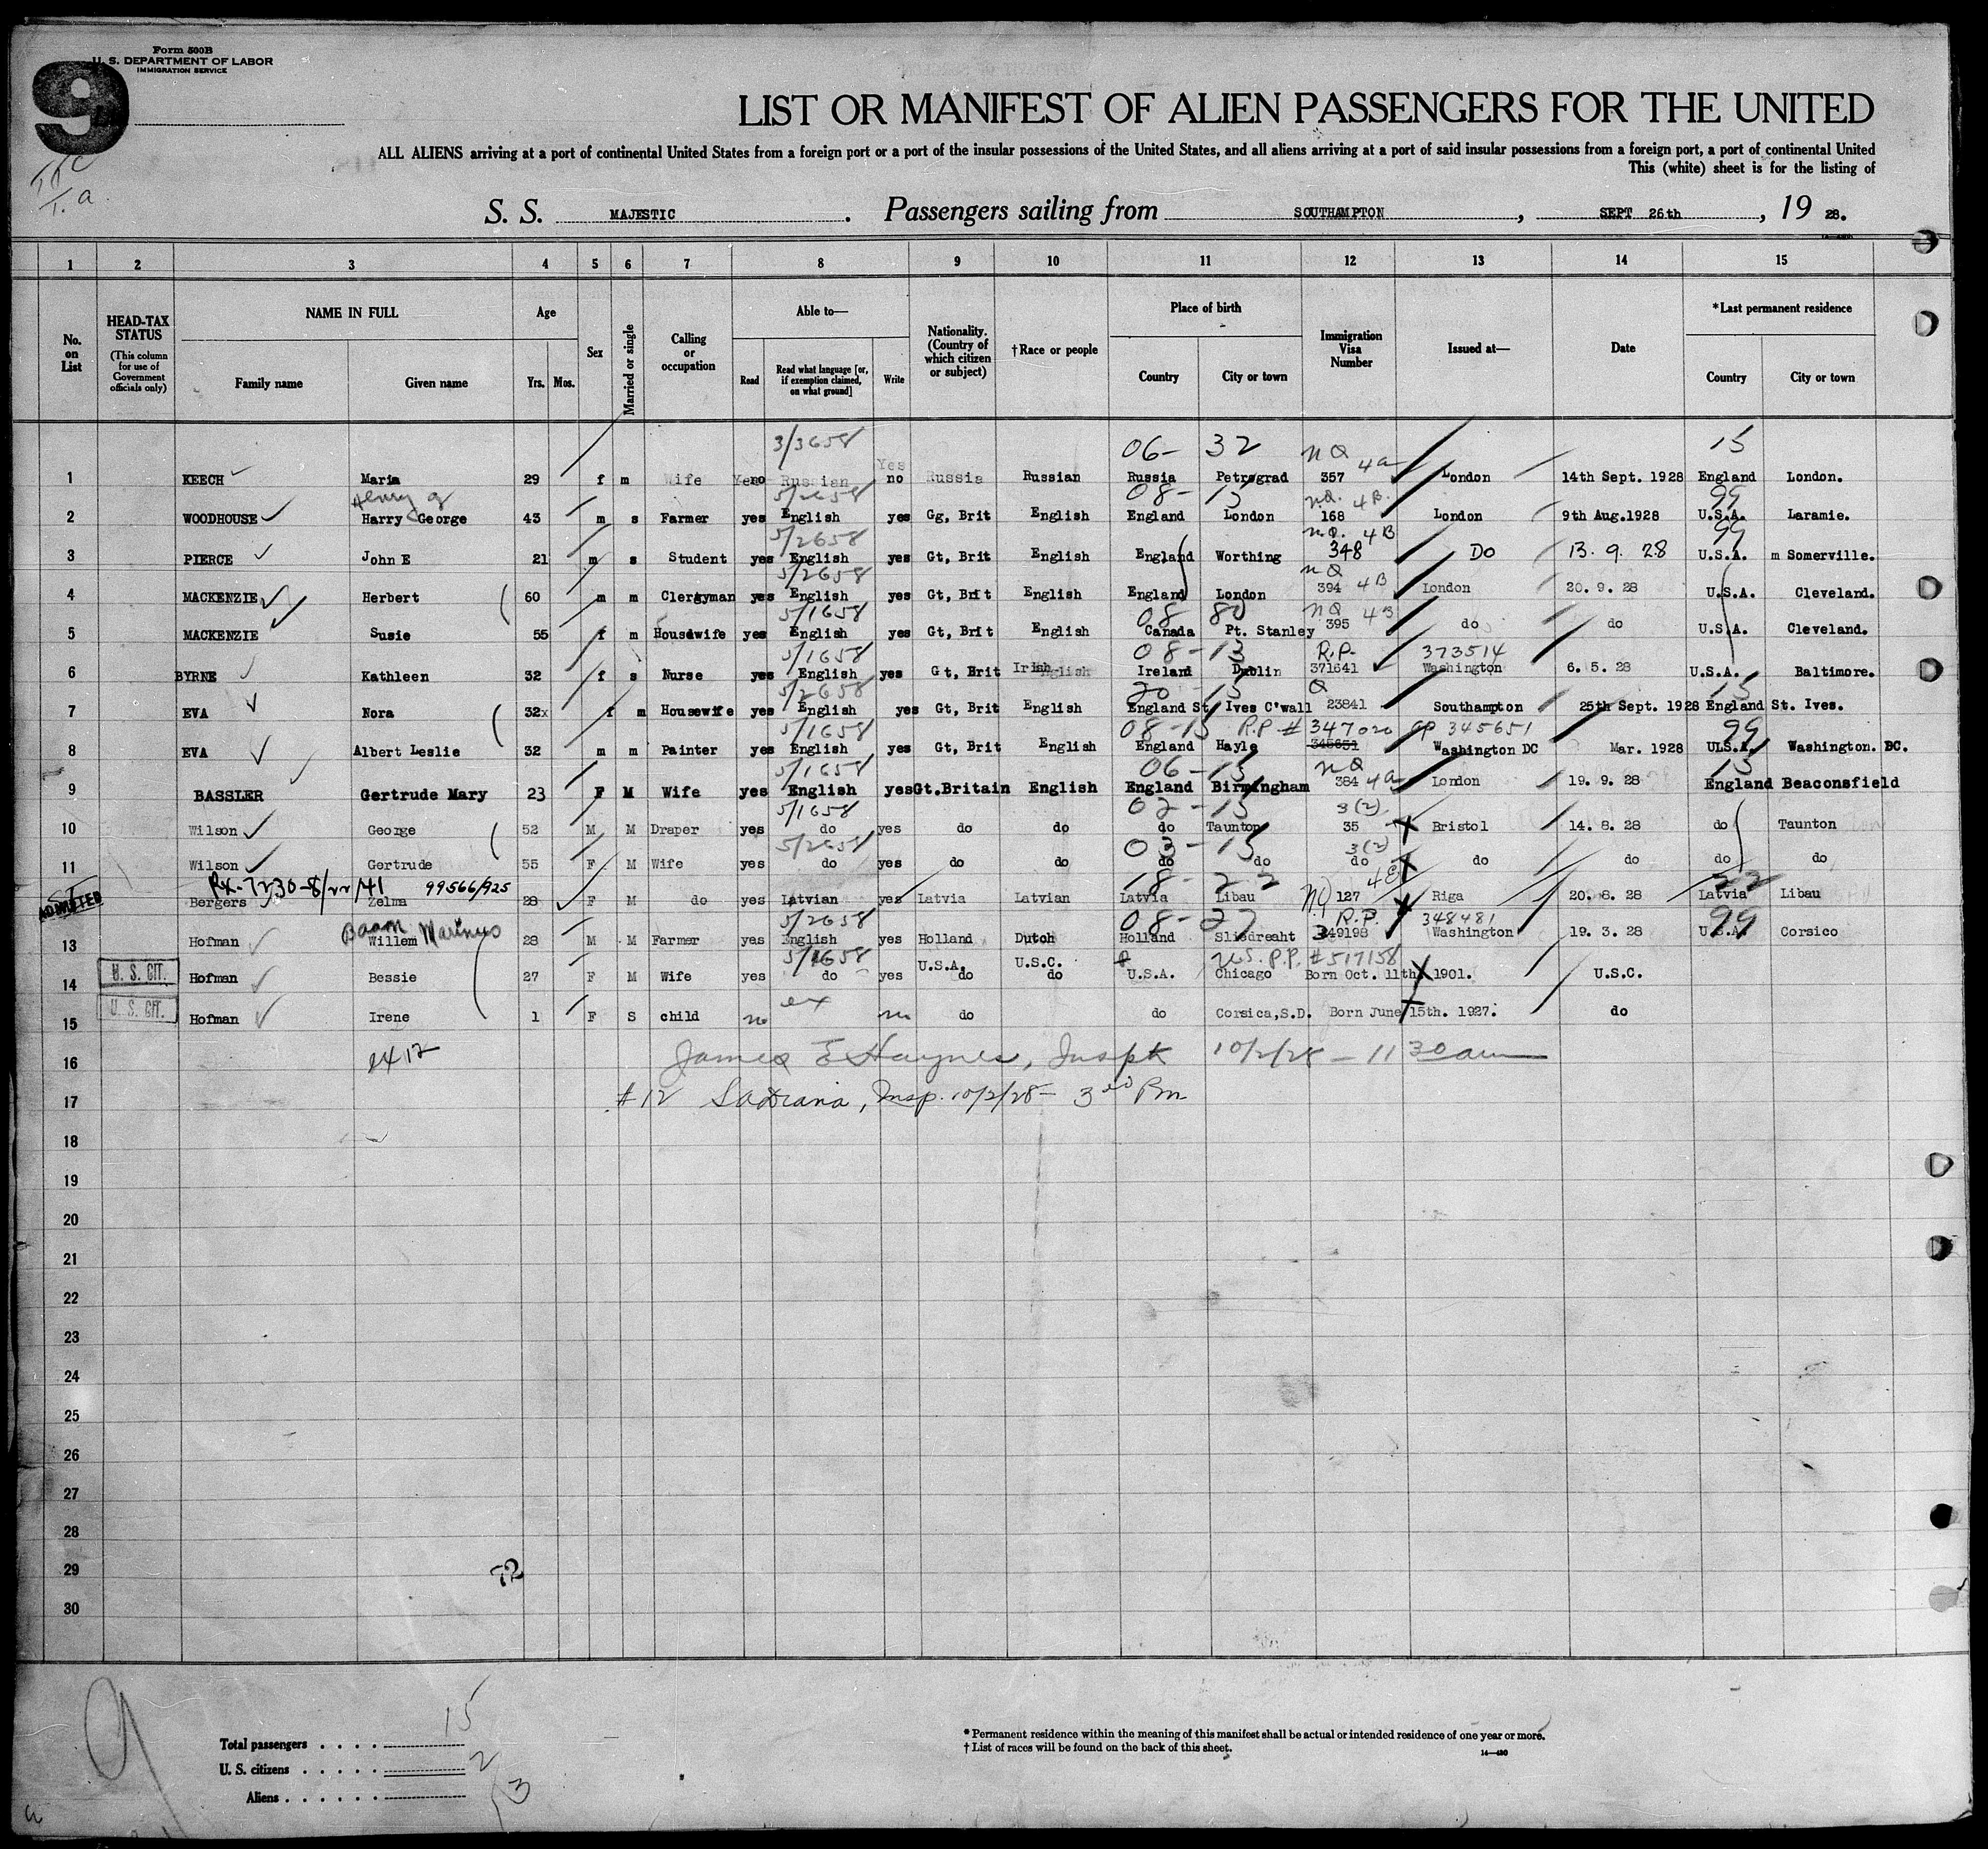 Form 500B
U. S. DEPARTMENT OF LABOR
IMMIGRATION SERVICE
9
T. a.
LIST OR MANIFEST OF ALIEN PASSENGERS FOR THE UNITED
ALL ALIENS arriving at a port of continental United States from a foreign port or a port of the insular possessions of the United States, and all aliens arriving at a port of said insular possessions from a foreign port, a port of continental United
This (white) sheet is for the listing of
S. S. MAJESTIC. Passengers sailing from SOUTHAMPTON, SEPT 26th, 19 28.
1 2 3 4 5 6 7 8 9 10 11 12 13 14 15
No. on List
HEAD-TAX STATUS (This column for use of Government officials only)
NAME IN FULL Family name Given name
Age Yrs. Mos.
Sex
Married or single
Calling or occupation
Able to— Read Read what language [or, if exemption claimed, on what ground] Write
Nationality. (Country of which citizen or subject)
†Race or people
Place of birth Country City or town
Immigration Visa Number
Issued at—
Date
*Last permanent residence Country City or town
3/3658 06- 32 nQ 4a 15
1 KEECH Maria 29 f m Wife Yes no Russian Yes no Russia Russian Russia Petrograd 357 London 14th Sept. 1928 England London.
Henry G 5/2658 08-15 n.Q. 4B. 99
2 WOODHOUSE Harry George 43 m s Farmer yes English yes Gg, Brit English England London 168 London 9th Aug.1928 U.S.A. Laramie.
5/2658 n.Q. 4B 99
3 PIERCE John E 21 m s Student yes English yes Gt, Brit English England Worthing 348 Do 13. 9. 28 U.S.A. m Somerville.
5/2658 nQ
4 MACKENZIE Herbert 60 m m Clergyman yes English yes Gt, Brit English England London 394 4B London 20. 9. 28 U.S.A. Cleveland.
5/1658 08 80 nQ 4B
5 MACKENZIE Susie 55 f m Housewife yes English yes Gt, Brit English Canada Pt. Stanley 395 do do U.S.A. Cleveland.
5/1658 08-13 R.P. 373514
6 BYRNE Kathleen 32 f s Nurse yes English yes Gt, Brit Irish English Ireland Dublin 371641 Washington 6. 5. 28 U.S.A. Baltimore.
5/2658 20-15 Q 15
7 EVA Nora 32x f m Housewife yes English yes Gt, Brit English England St Ives C'wall 23841 Southampton 25th Sept. 1928 England St. Ives.
5/1658 08-15 R.P. # 347020 345651 99
8 EVA Albert Leslie 32 m m Painter yes English yes Gt, Brit English England Hayle 345651 Washington DC Mar. 1928 ULS.A. Washington. DC.
5/1658 06-15 nQ 15
9 BASSLER Gertrude Mary 23 F M Wife yes English yes Gt.Britain English England Birmingham 384 4a London 19. 9. 28 England Beaconsfield
5/1658 02-15 3(2)
10 Wilson George 52 M M Draper yes do yes do do do Taunton 35 Bristol 14. 8. 28 do Taunton
5/2658 03-15 3(2)
11 Wilson Gertrude 55 F M Wife yes do yes do do do do do do do do do
Rx-7230-8/22/41 99566/925 18-22 4E 22
ADMITTED Bergers Zelma 28 F M do yes Latvian yes Latvia Latvian Latvia Libau NQ 127 Riga 20. 8. 28 Latvia Libau
Baam Marinus 5/2658 08-27 R.P. 348481 99
13 Hofman Willem 28 M M Farmer yes English yes Holland Dutch Holland Sliedreaht 349198 Washington 19. 3. 28 U.S.A. Corsico
5/1658 U.S.A. U.S.C. U.S. P.P. #517158
14 U. S. CIT. Hofman Bessie 27 F M Wife yes do yes do do U.S.A. Chicago Born Oct. 11th. 1901. U.S.C.
ex
15 U. S. CIT. Hofman Irene 1 F S child no no do do Corsica,S.D. Born June 15th. 1927. do
16 James E Haynes, Inspt 10/2/28 - 11 30 am
17 #12 Insp. 10/2/28- 3 00 Pm
18
19
20
21
22
23
24
25
26
27
28
29
72
30
9
Total passengers . . . . 15
U. S. citizens . . . . . 2
Aliens . . . . . . 13
* Permanent residence within the meaning of this manifest shall be actual or intended residence of one year or more.
† List of races will be found on the back of this sheet.
14—430